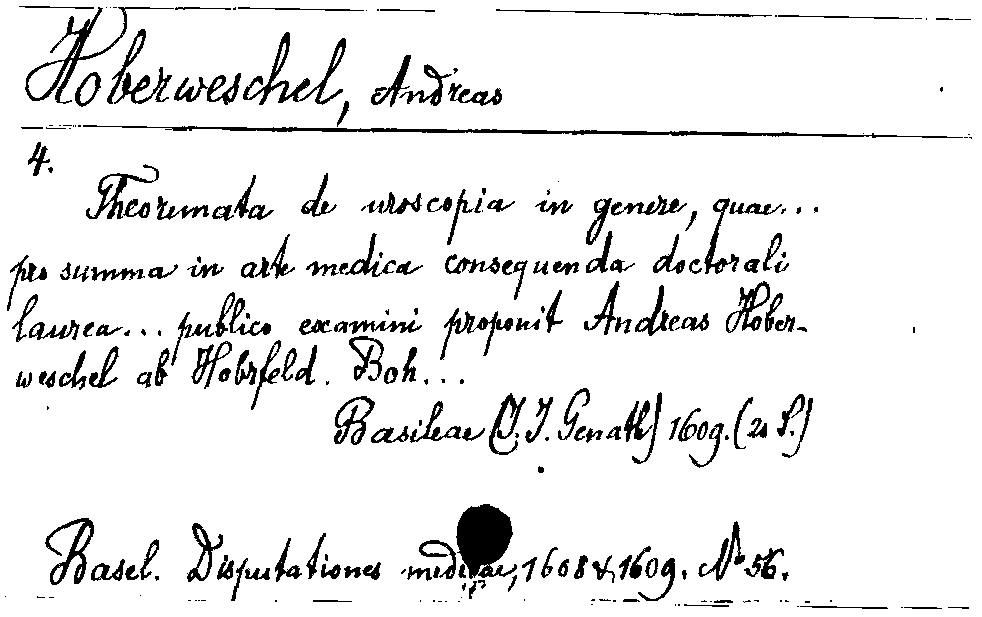 Hoberweschel, Andreas
4.
Theoremata de uroscopia in genere, quae...
pro summa in arte medica consequenda doctorali
laurea... publico examini proponit Andreas Hober-
weschel ab Hobrfeld. Boh...
Basileae (J. J. Genath) 1609. (20 S.)
Basel. Disputationes medicae, 1608 &, 1609. No 56.